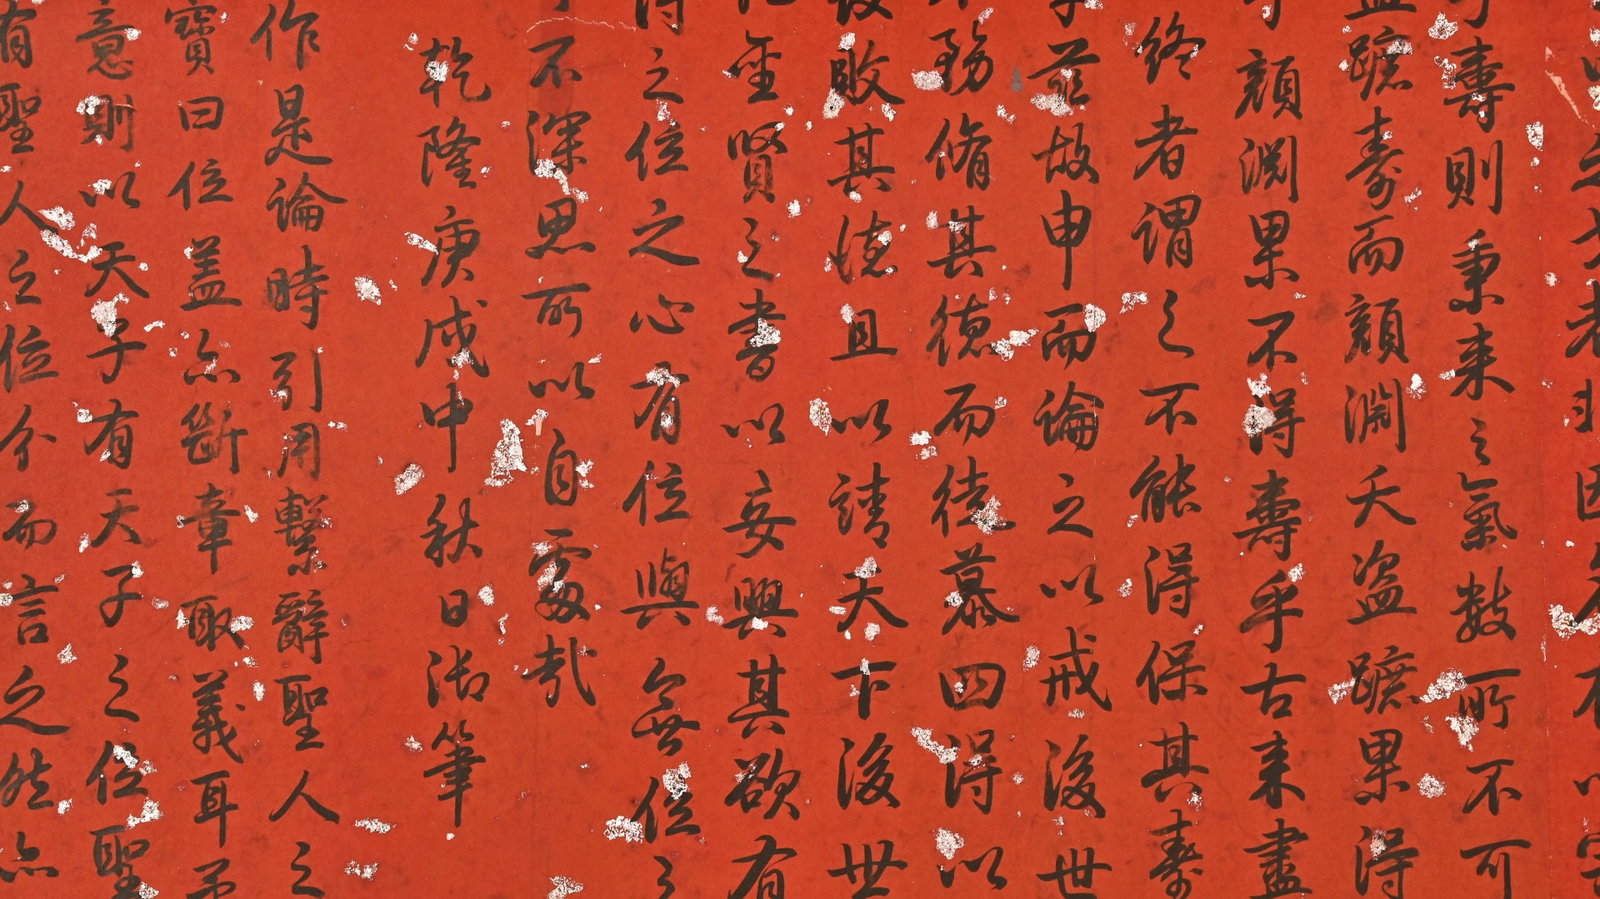 者非因
壽則秉来之氣數所不可
盜蹠壽而顔淵夭盜蹠果得
乎顔淵果不得壽乎古来盡
終者謂之不能得保其壽
兹故申而論之以戒後世
不務脩其德而徒慕四得以
敗其德且以請天下後世
聖賢之書以妄興其欲有
得之位之心有位與無位之
不深思所以自處哉
乾隆庚戌中秋日御筆
作是論時引用繫辭聖人之
寶曰位盖亦斷章取義耳弟
意則以天子有天子之位聖
有聖人之位分而言之然亦